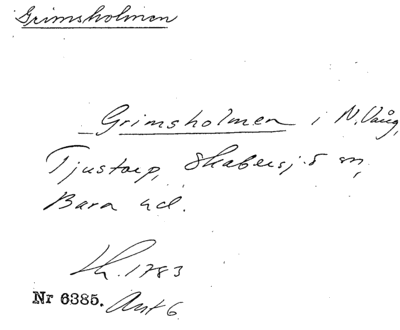 Grimsholmen
Grimsholmen i N. Vång,
Tjustorp, Skabersj. s n,
Bara hd.
Lh. 1783
Nr 6385. Ant 6